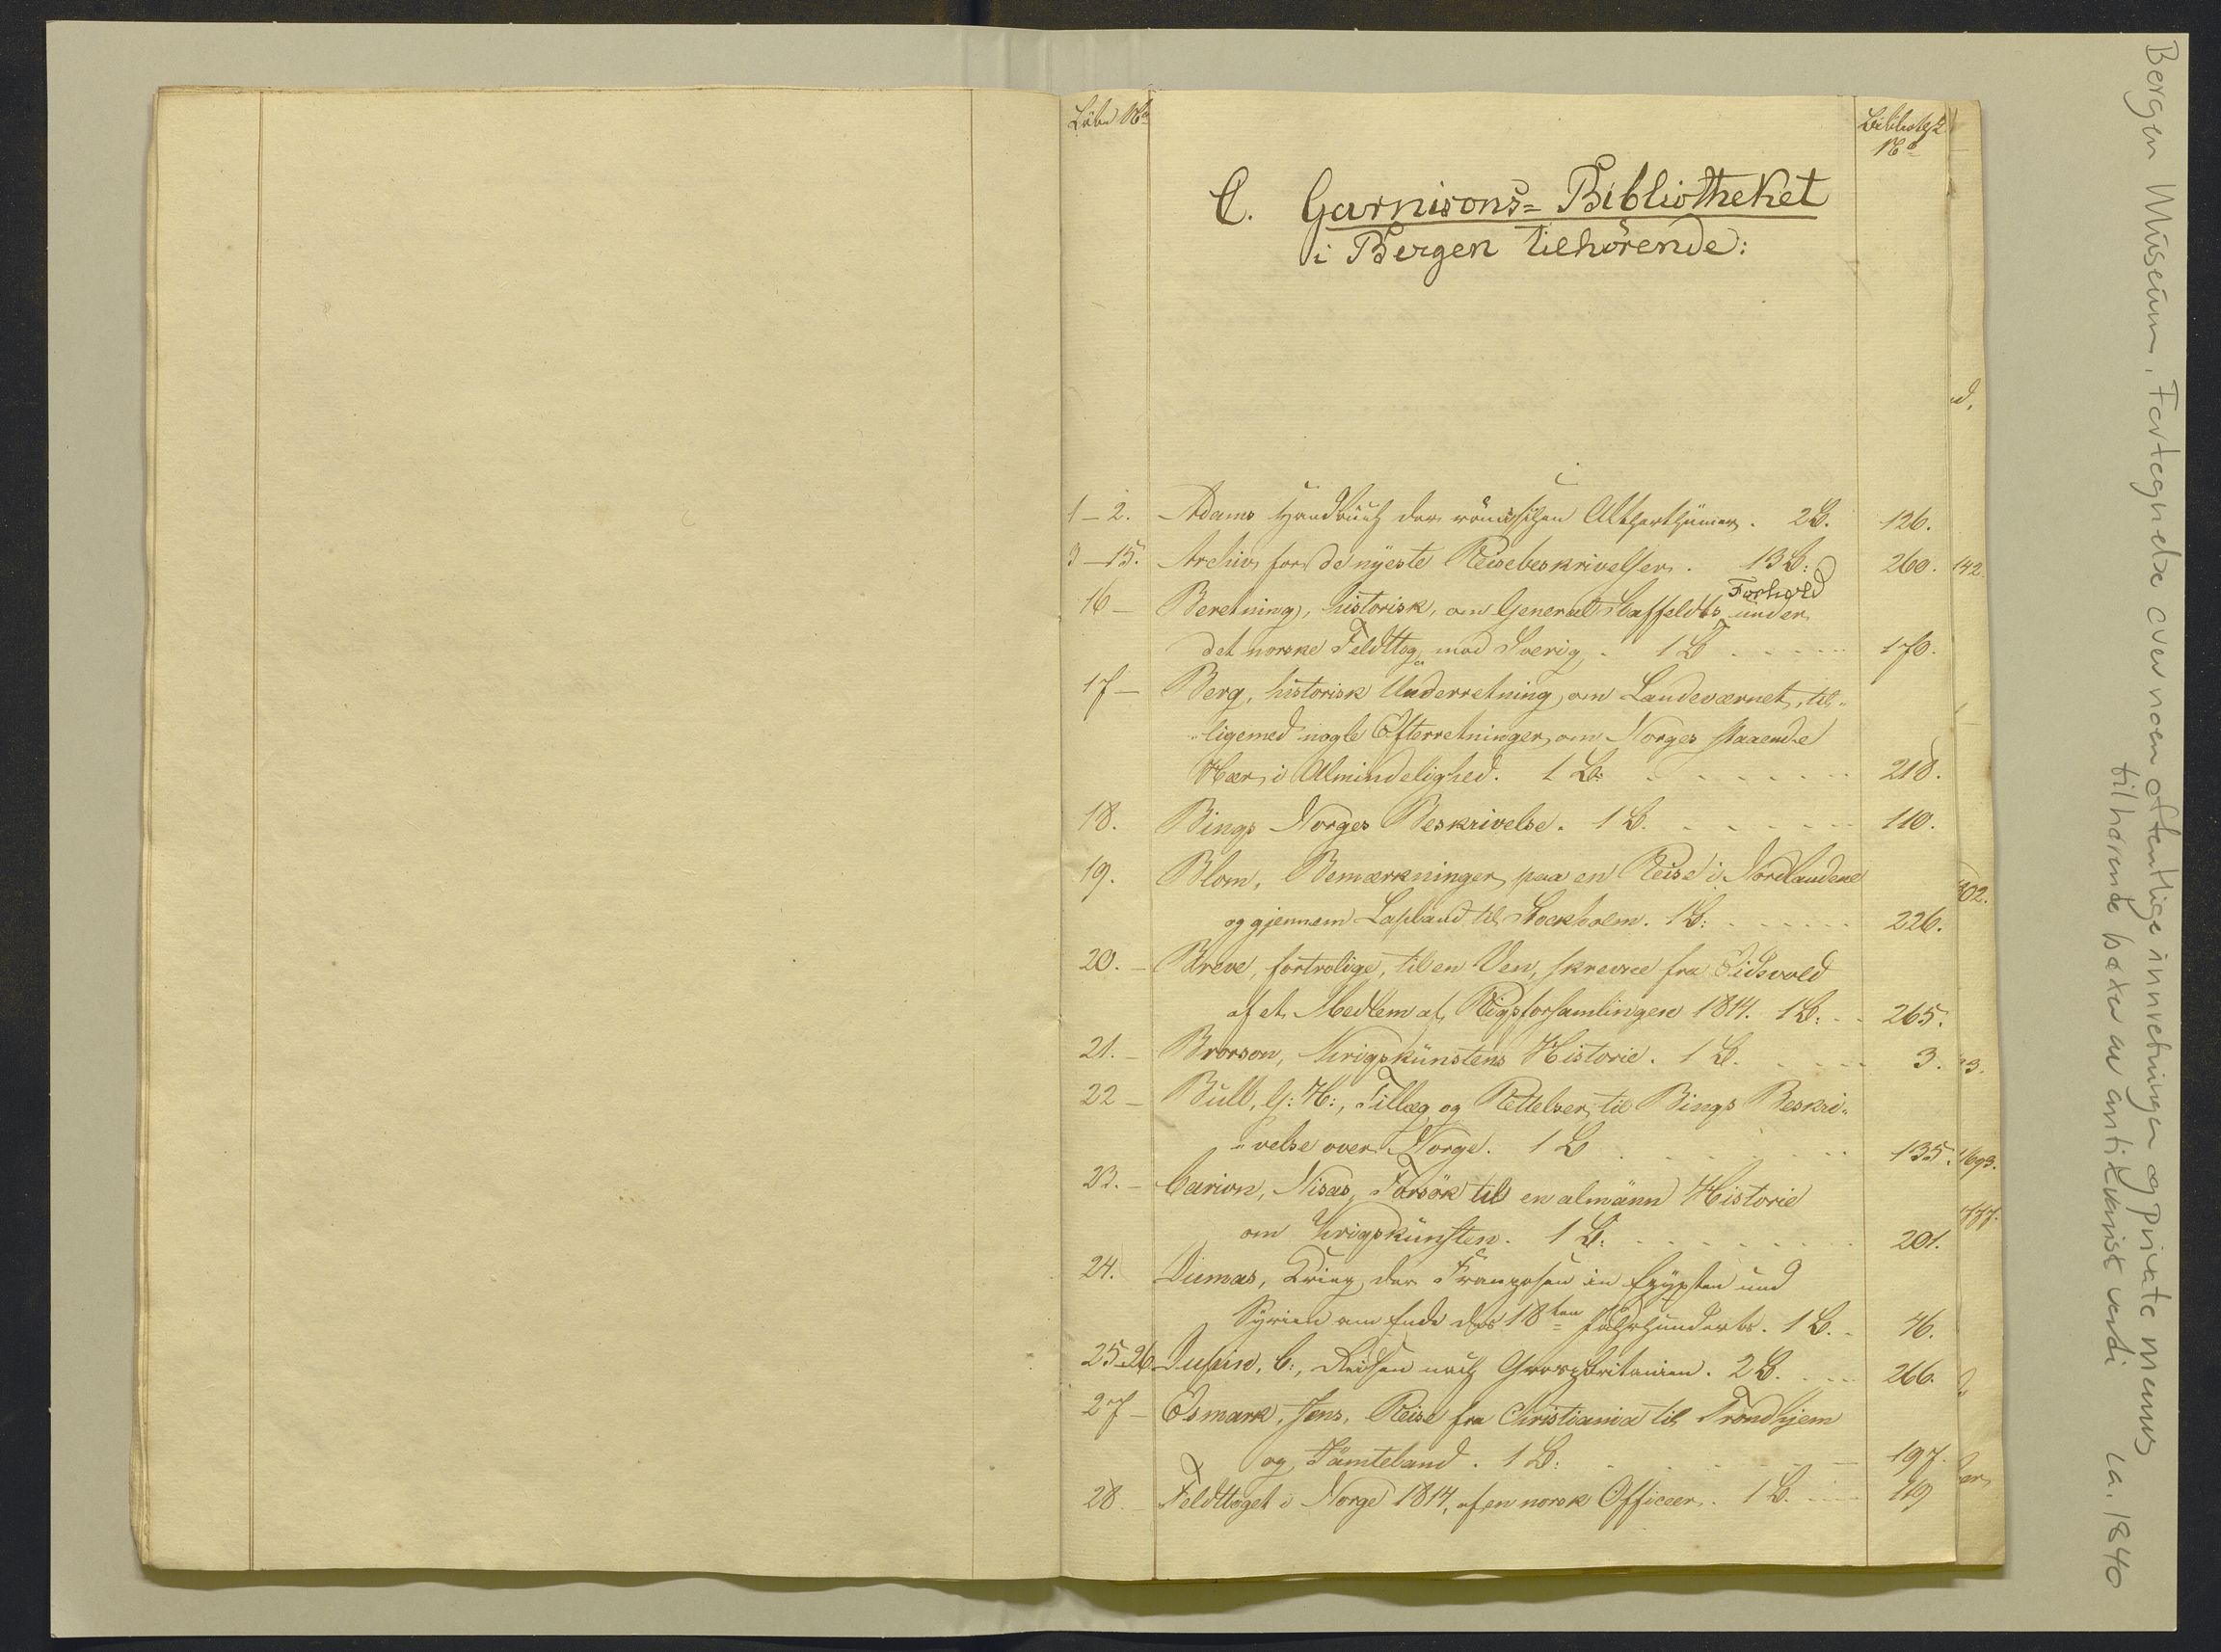 Löbe No
Bibliothek
No
C. Garnisons=Bibliotheket
i Bergen tilhörende:
1–2. Adams Handbuch der römischen Alterthümer. 2 B. 126.
3–15. Archiv for de nyeste Reisebeskrivelser. 13 B: 260.
16 – Beretning, historisk, om General Staffeldts Forhold under
det norske Feldttog mod Sverig. 1 B 170.
17 – Berg, historisk Underretning om Landeværnet, til-
ligemed nogle Efterretninger om Norges staaende
Hær i Almindelighed. 1 B: 218.
18. Bings Norges Beskrivelse. 1 B. 110.
19. Blom, Bemærkninger paa en Reise i Nordlandene
og gjennem Lapland til Stockholm. 1 B: 226.
20. – Breve, fortrolige, til en Ven, skrevne fra Eidsvold
af et Medlem af Rigsforsamlingen 1814. 1 B: 265.
21. – Brorson, Krigskünstens Historie. 1 B. 3.
22 – Bull, G: H:, Tillæg og Rettelser til Bings Beskri-
velse over Norge. 1 B 135.
23. – Carion, Nisas, Forsök til en almänn Historie
om Krigskünsten. 1 B: 201.
24. Dumas, Krieg der Franzosen in Egÿpten und
Sÿrien am Ende des 18ten Jahrhunderts. 1 B. 46.
25–26. Dupin, C:, Reisen nach Grossbritanien. 2 B. 266.
27 – Esmark, Jens, Reise fra Christiania til Trondhjem
og Jämteland. 1 B: 197.
28. – Feldttoget i Norge 1814, af en norsk Officeer. 1 B. 119
d.
142
302.
3.
1693.
er
Bergen Museum. Fortegnelse over noen offentlige innretninger og private menns
tilhørende bøker av antikvarisk verdi ca. 1840